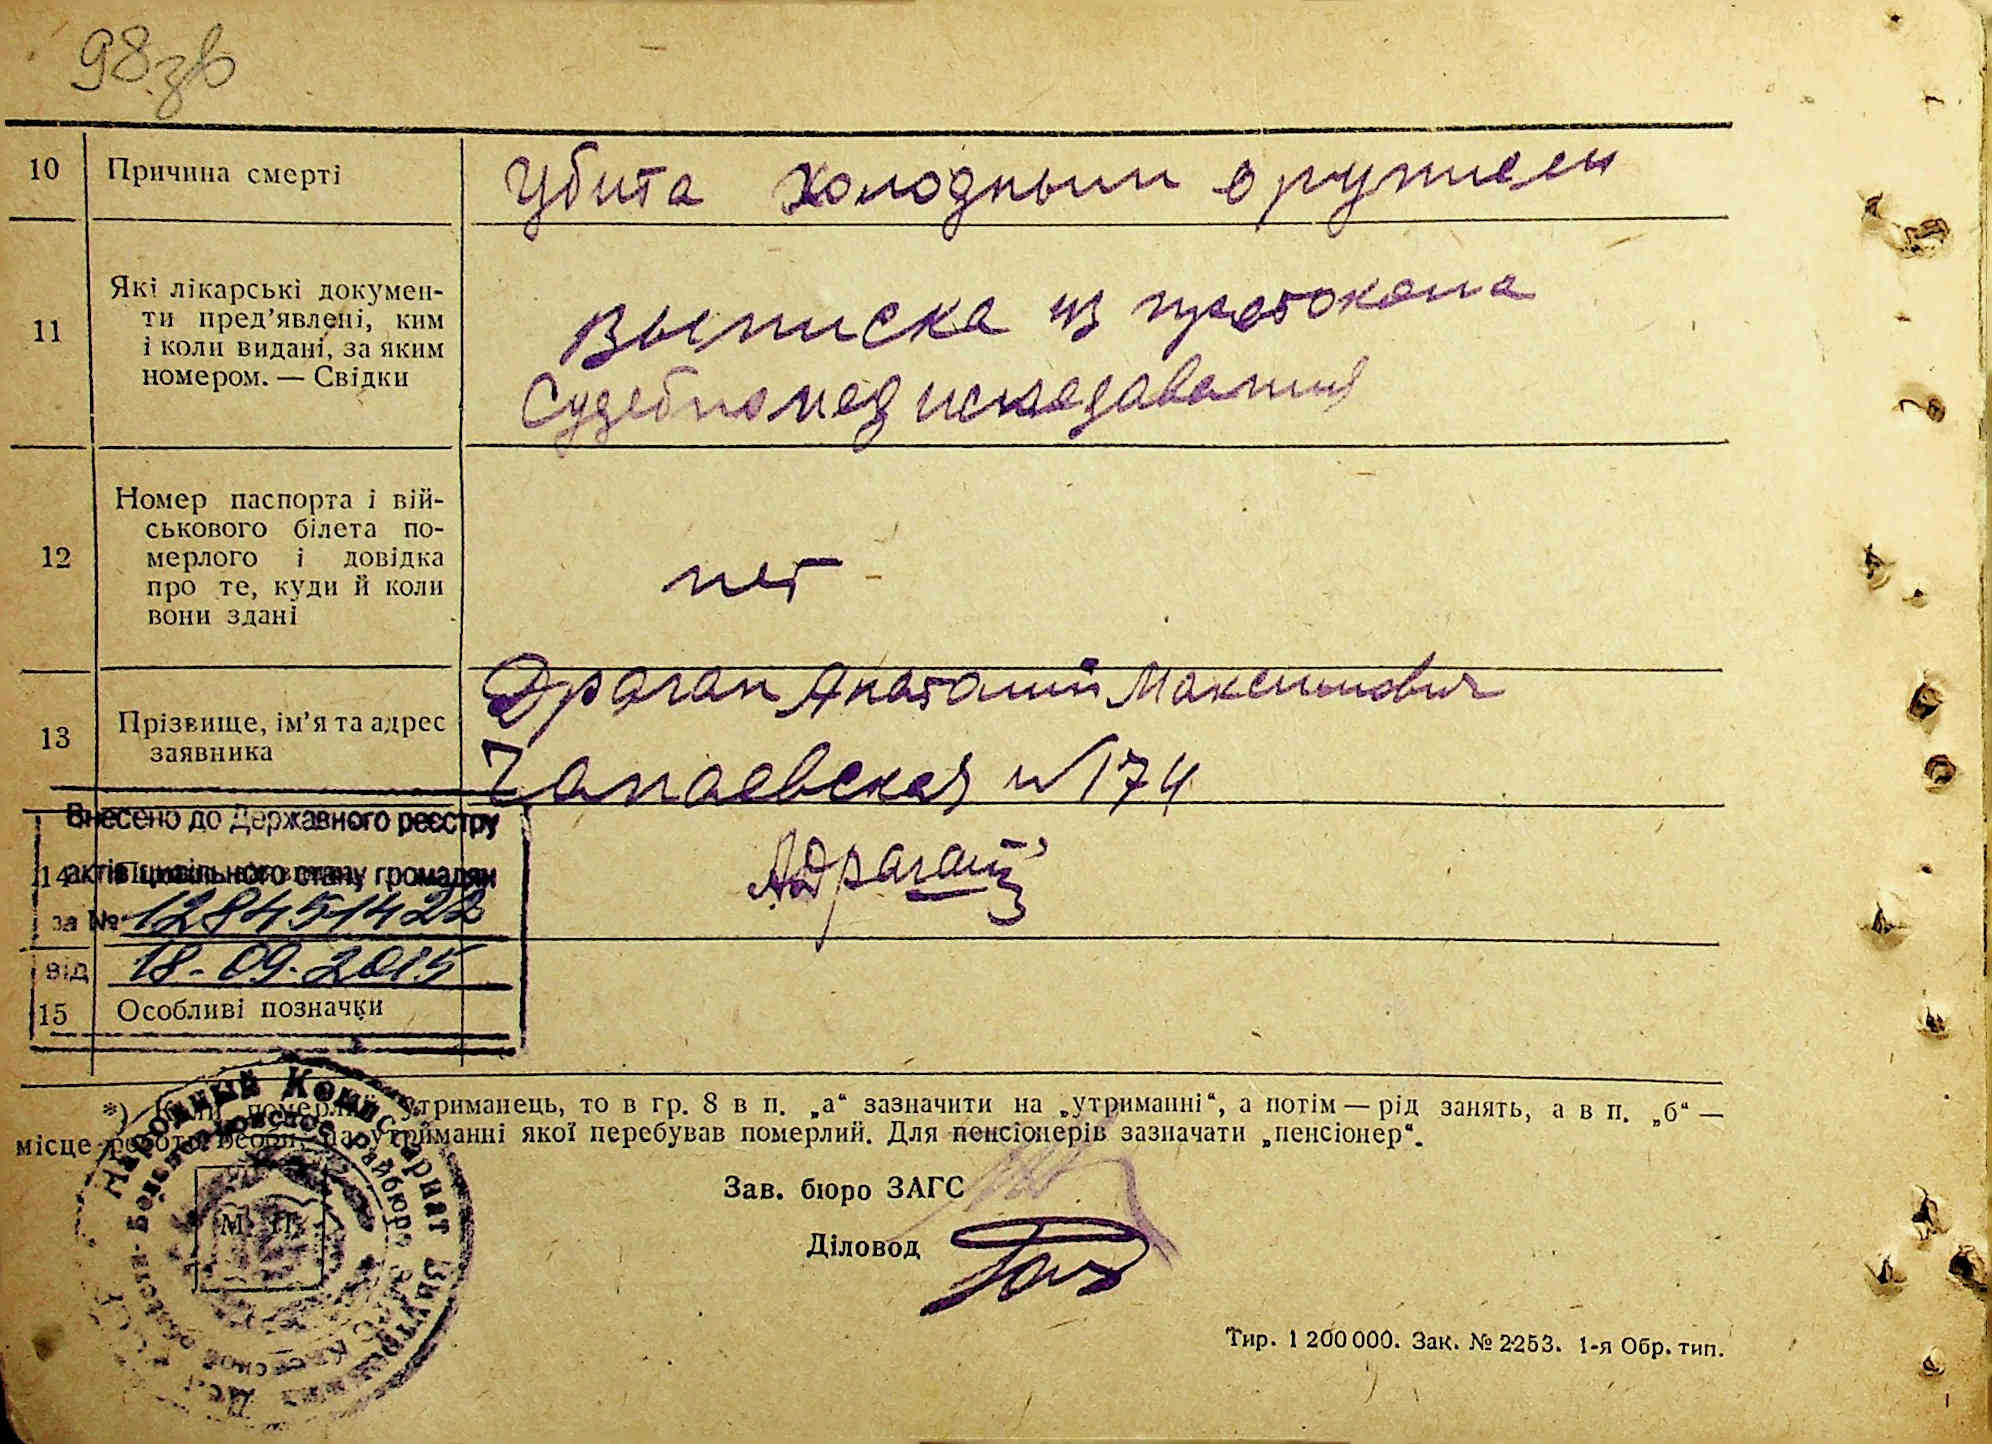 98зв
10 Причина смерті
Убита холодным оружием
11 Які лікарські докумен-
ти пред’явлені, ким
і коли видані, за яким
номером. — Свідки
Выписка из протокола
Судебномед исследавания
12 Номер паспорта і вій-
ськового білета по-
мерлого і довідка
про те, куди й коли
вони здані
нет
13 Прізвище, ім’я та адрес
заявника
Драган Анатолий Максимович
Чапаевская №174
Внесено до Державного реєстру
14
актів цивільного стану громадян
за № 12845-1422
від 18-09-2015
АДраган
15 Особливі позначки
*) Коли померлий утриманець, то в гр. 8 в п. „а“ зазначити на „утриманні“, а потім — рід занять, а в п. „б“ —
місце роботи особи, на утриманні якої перебував померлий. Для пенсіонерів зазначати „пенсіонер“.
Народный Комиссариат Внутренних Дел
Райбюро ЗАГС
М. П.
Зав. бюро ЗАГС
Діловод
Тир. 1 200 000. Зак. № 2253. 1-я Обр. тип.